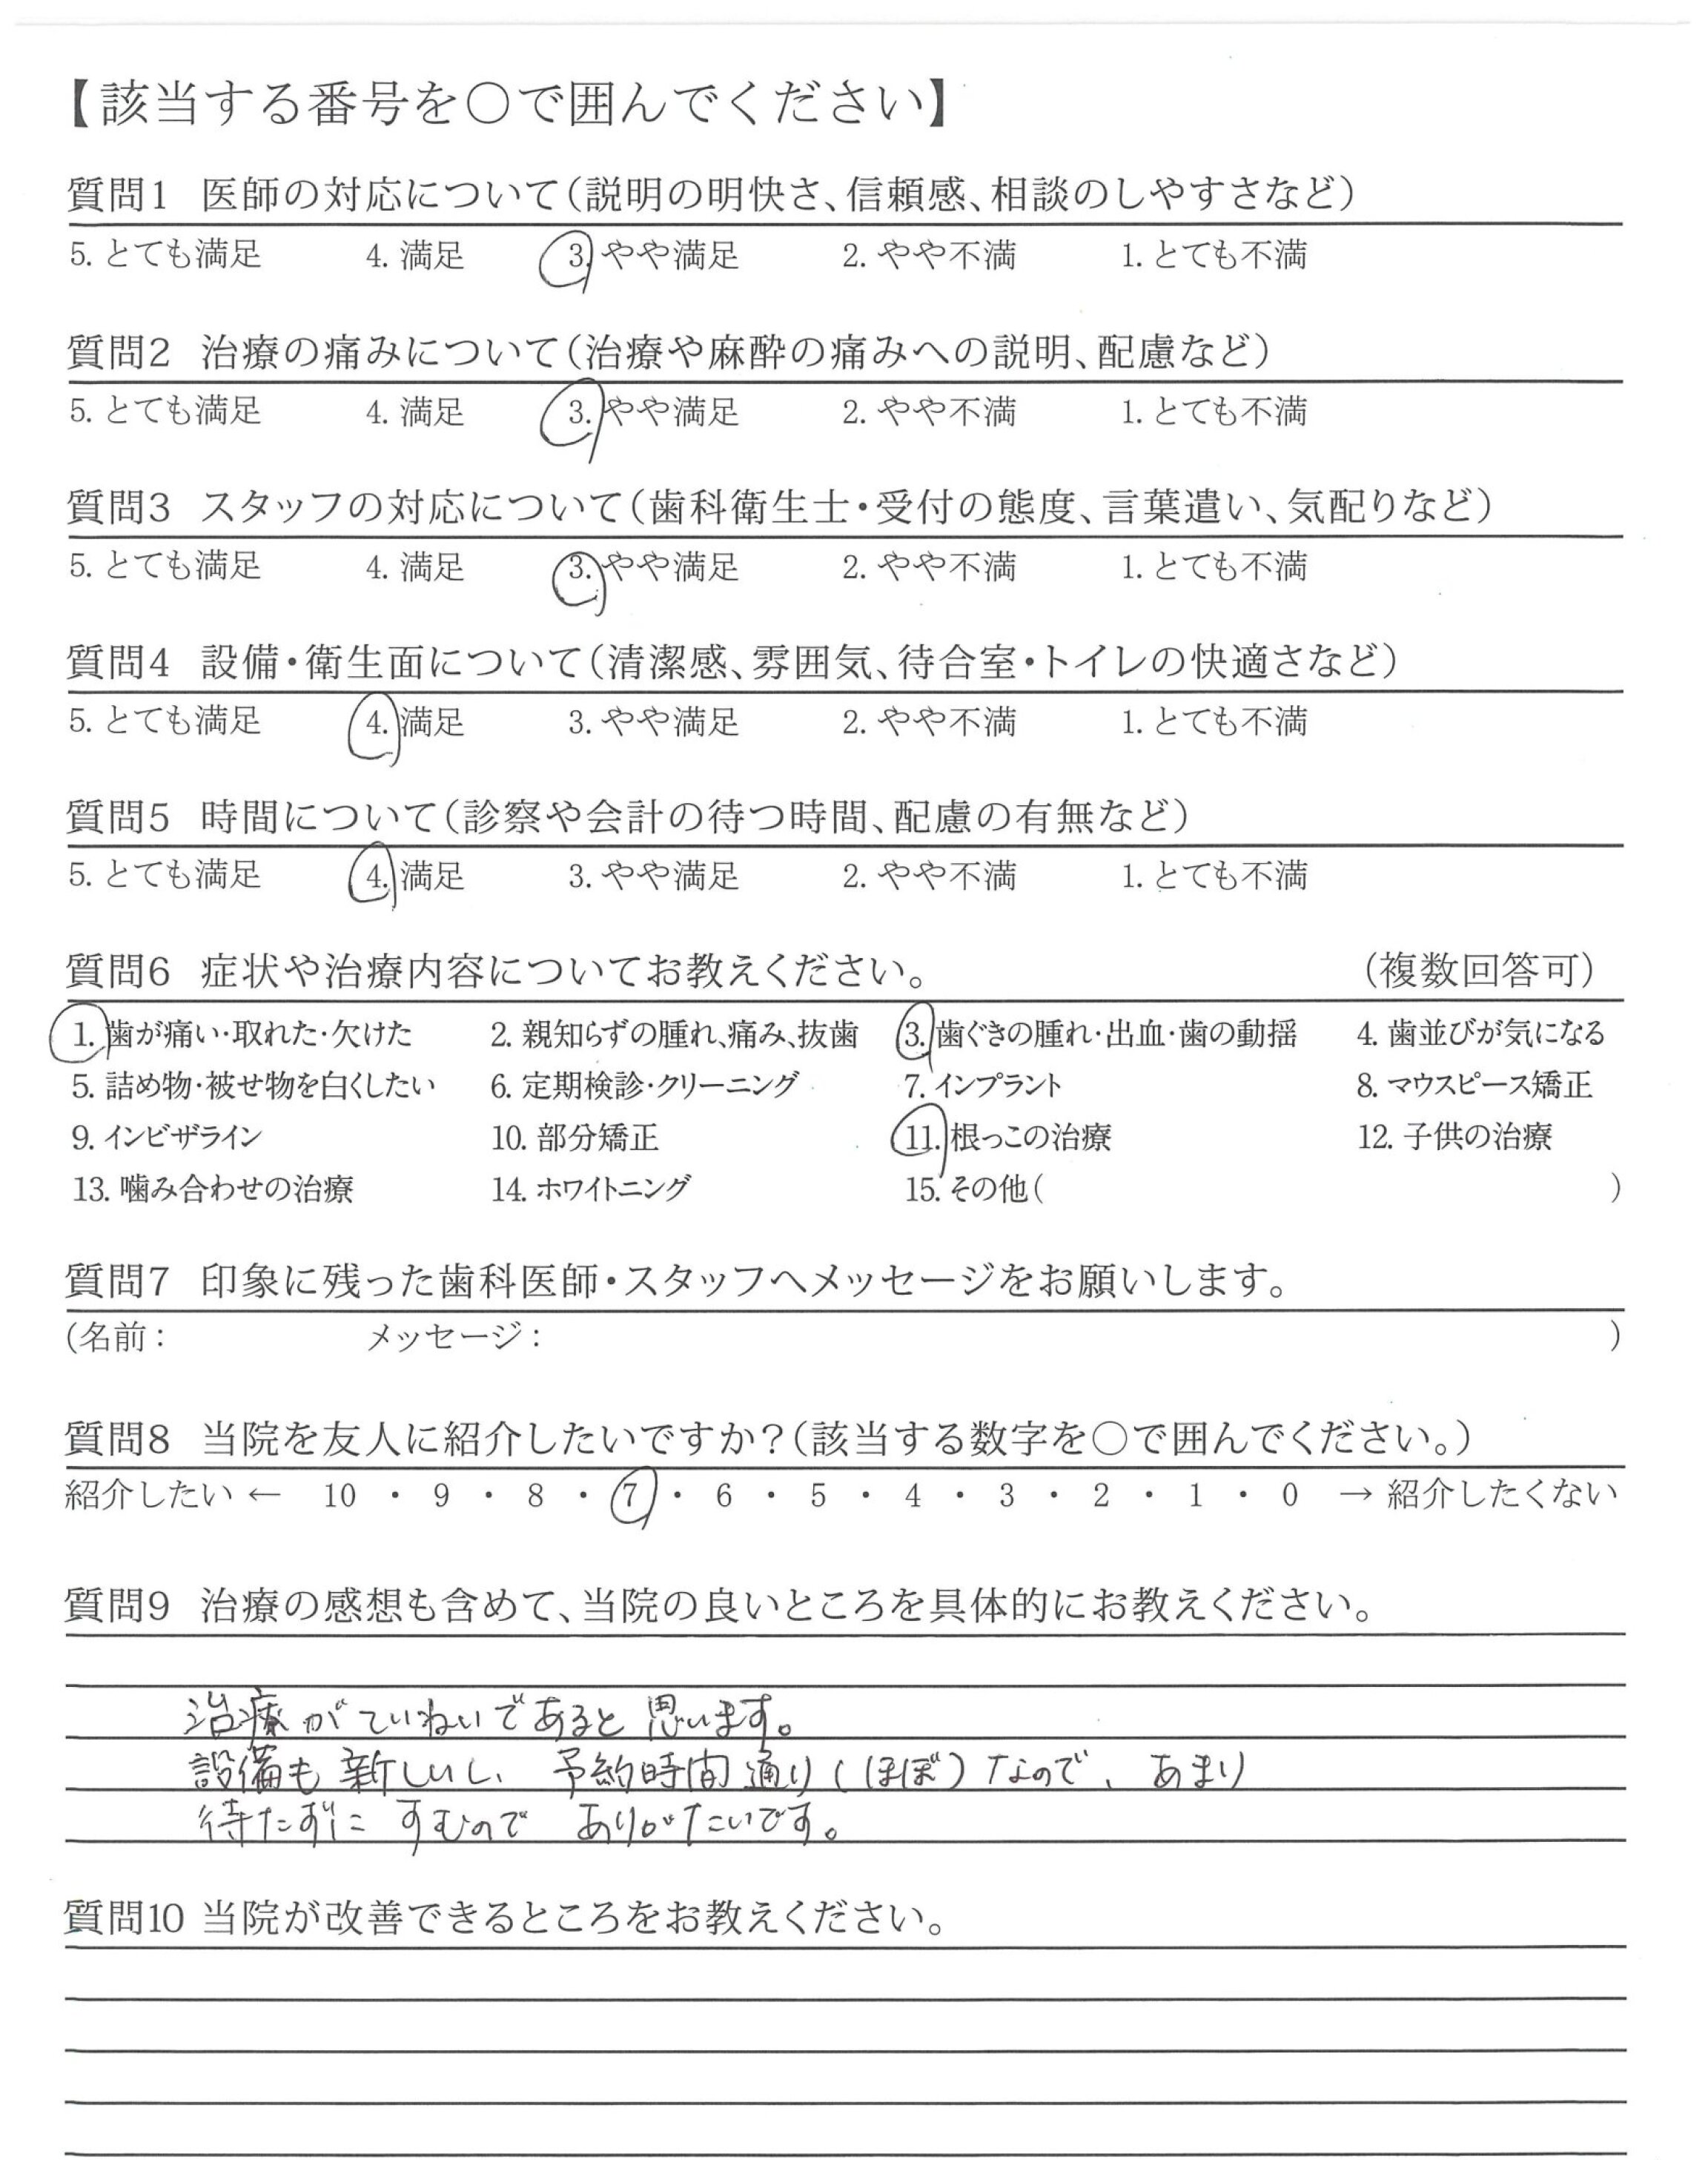 【該当する番号を○で囲んでください】
質問1 医師の対応について(説明の明快さ、信頼感、相談のしやすさなど)
5. とても満足 4. 満足 3. やや満足 2. やや不満 1. とても不満
質問2 治療の痛みについて(治療や麻酔の痛みへの説明、配慮など)
5. とても満足 4. 満足 3. やや満足 2. やや不満 1. とても不満
質問3 スタッフの対応について(歯科衛生士・受付の態度、言葉遣い、気配りなど)
5. とても満足 4. 満足 3. やや満足 2. やや不満 1. とても不満
質問4 設備・衛生面について(清潔感、雰囲気、待合室・トイレの快適さなど)
5. とても満足 4. 満足 3. やや満足 2. やや不満 1. とても不満
質問5 時間について(診察や会計の待つ時間、配慮の有無など)
5. とても満足 4. 満足 3. やや満足 2. やや不満 1. とても不満
質問6 症状や治療内容についてお教えください。 (複数回答可)
1. 歯が痛い・取れた・欠けた 2. 親知らずの腫れ、痛み、抜歯 3. 歯ぐきの腫れ・出血・歯の動揺 4. 歯並びが気になる
5. 詰め物・被せ物を白くしたい 6. 定期検診・クリーニング 7. インプラント 8. マウスピース矯正
9. インビザライン 10. 部分矯正 11. 根っこの治療 12. 子供の治療
13. 噛み合わせの治療 14. ホワイトニング 15. その他( )
質問7 印象に残った歯科医師・スタッフへメッセージをお願いします。
(名前: メッセージ: )
質問8 当院を友人に紹介したいですか?(該当する数字を○で囲んでください。)
紹介したい ← 10 ・ 9 ・ 8 ・ 7 ・ 6 ・ 5 ・ 4 ・ 3 ・ 2 ・ 1 ・ 0 → 紹介したくない
質問9 治療の感想も含めて、当院の良いところを具体的にお教えください。
治療がていねいであると思います。
設備も新しいし、予約時間通り(ほぼ)なので、あまり
待たずにすむので ありがたいです。
質問10 当院が改善できるところをお教えください。